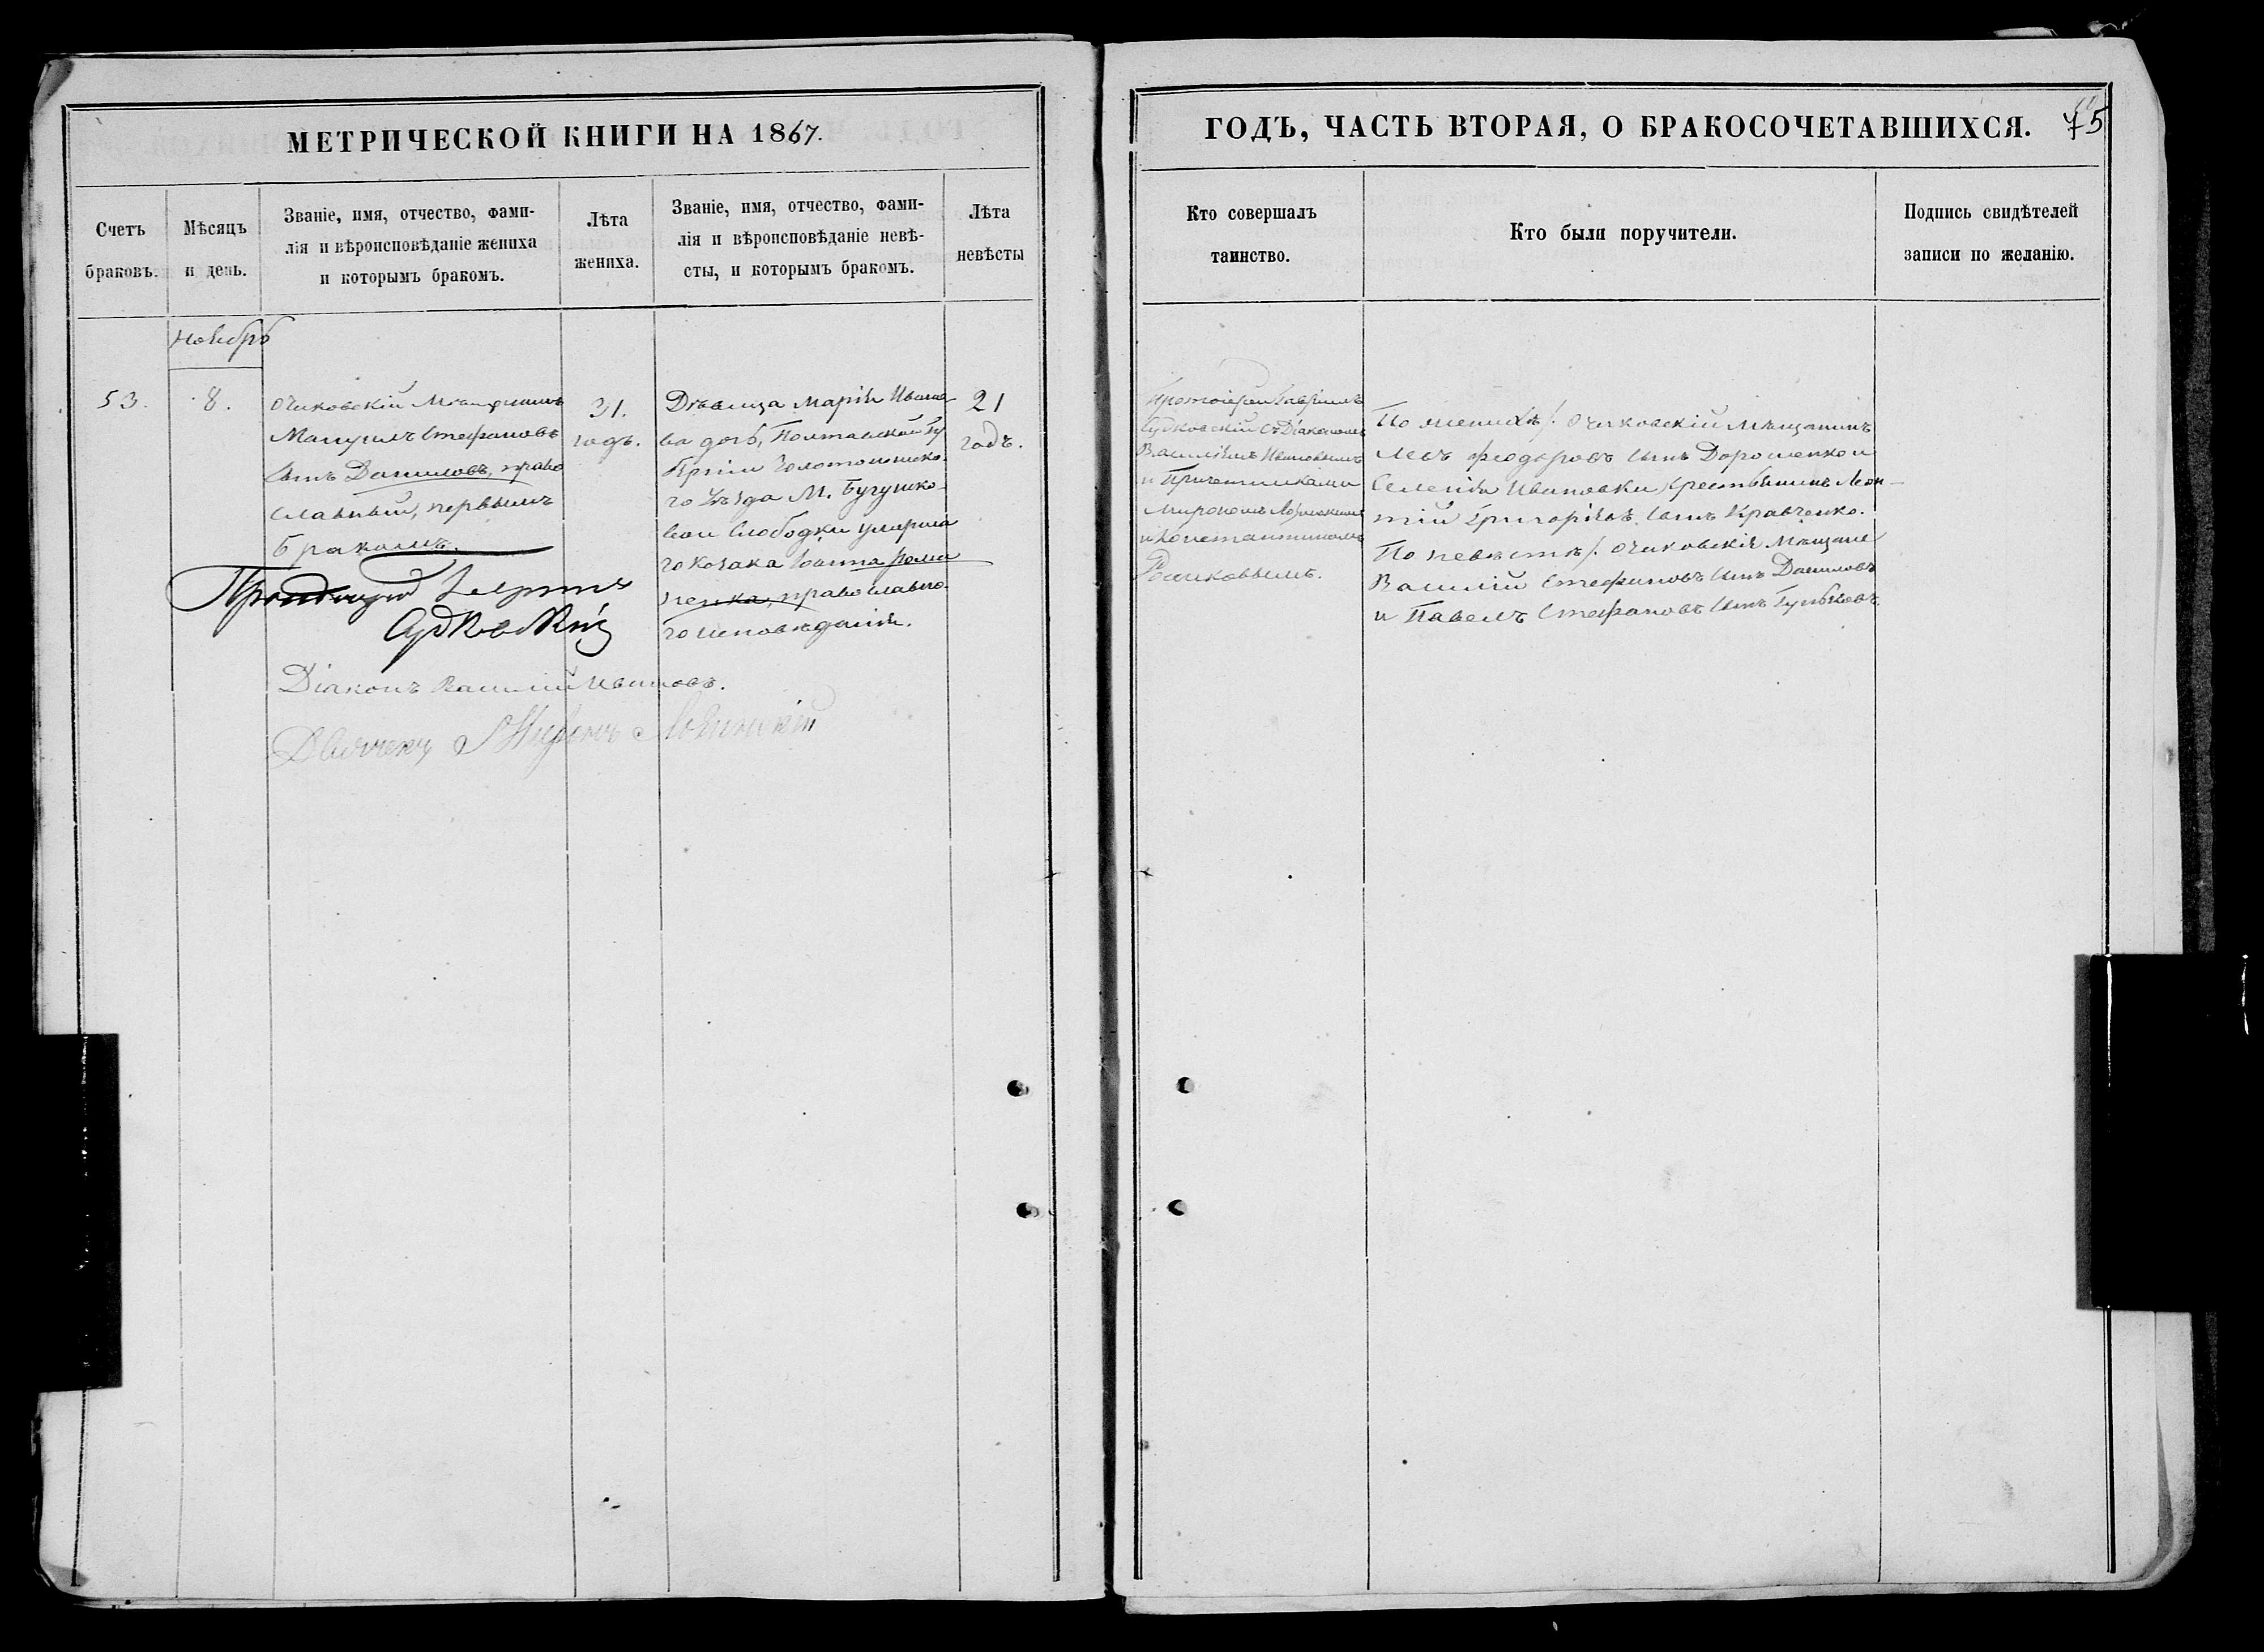 МЕТРИЧЕСКОЙ КНИГИ НА 1867.
Счетъ браковъ.
Мѣсяцъ и день.
Званіе, имя, отчество, фами-
лія и вѣроисповѣданіе жениха
и которымъ бракомъ.
Лѣта
жениха.
Званіе, имя, отчество, фами-
лія и вѣроисповѣданіе невѣ-
сты, и которымъ бракомъ.
Лѣта
невѣсты
Ноябрь
53.
8.
Очаковскій Мѣщанинъ
Мануилъ Стефановъ
сынъ Даниловъ, право
славный, первымъ
бракомъ.
31.
годъ.
Дѣвица Марія Иванова
дочь, Полтавской Гу
берніи Золотоношско
го Уѣзда М.
вой Слободки умерша
го козака Іоанна
ненка, православно
го исповѣданія.
21
годъ.
Протоіерей Гавріилъ
Судковскій
Діаконъ Василій Ивановъ.
Дьячекъ Миронъ
ГОДЪ, ЧАСТЬ ВТОРАЯ, О БРАКОСОЧЕТАВШИХСЯ. 75
Кто совершалъ
таинство.
Кто были поручители.
Подпись свидѣтелей
записи по желанію.
Протоіерей Гавріилъ
Судковскій съ Діакономъ
Василіемъ Ивановымъ
и Причетниками
Мирономъ
и Константиномъ
По женихѣ/: Очаковскій мѣщанинъ
Левъ Феодоровъ сынъ Дорошенко и
Селенія Ивановки крестьянинъ Леон-
тій Григорьевъ сынъ Кравченко.
По невѣстѣ/: Очаковскіе Мѣщане
Василій Стефановъ сынъ Даниловъ
и Павелъ Стефановъ сынъ